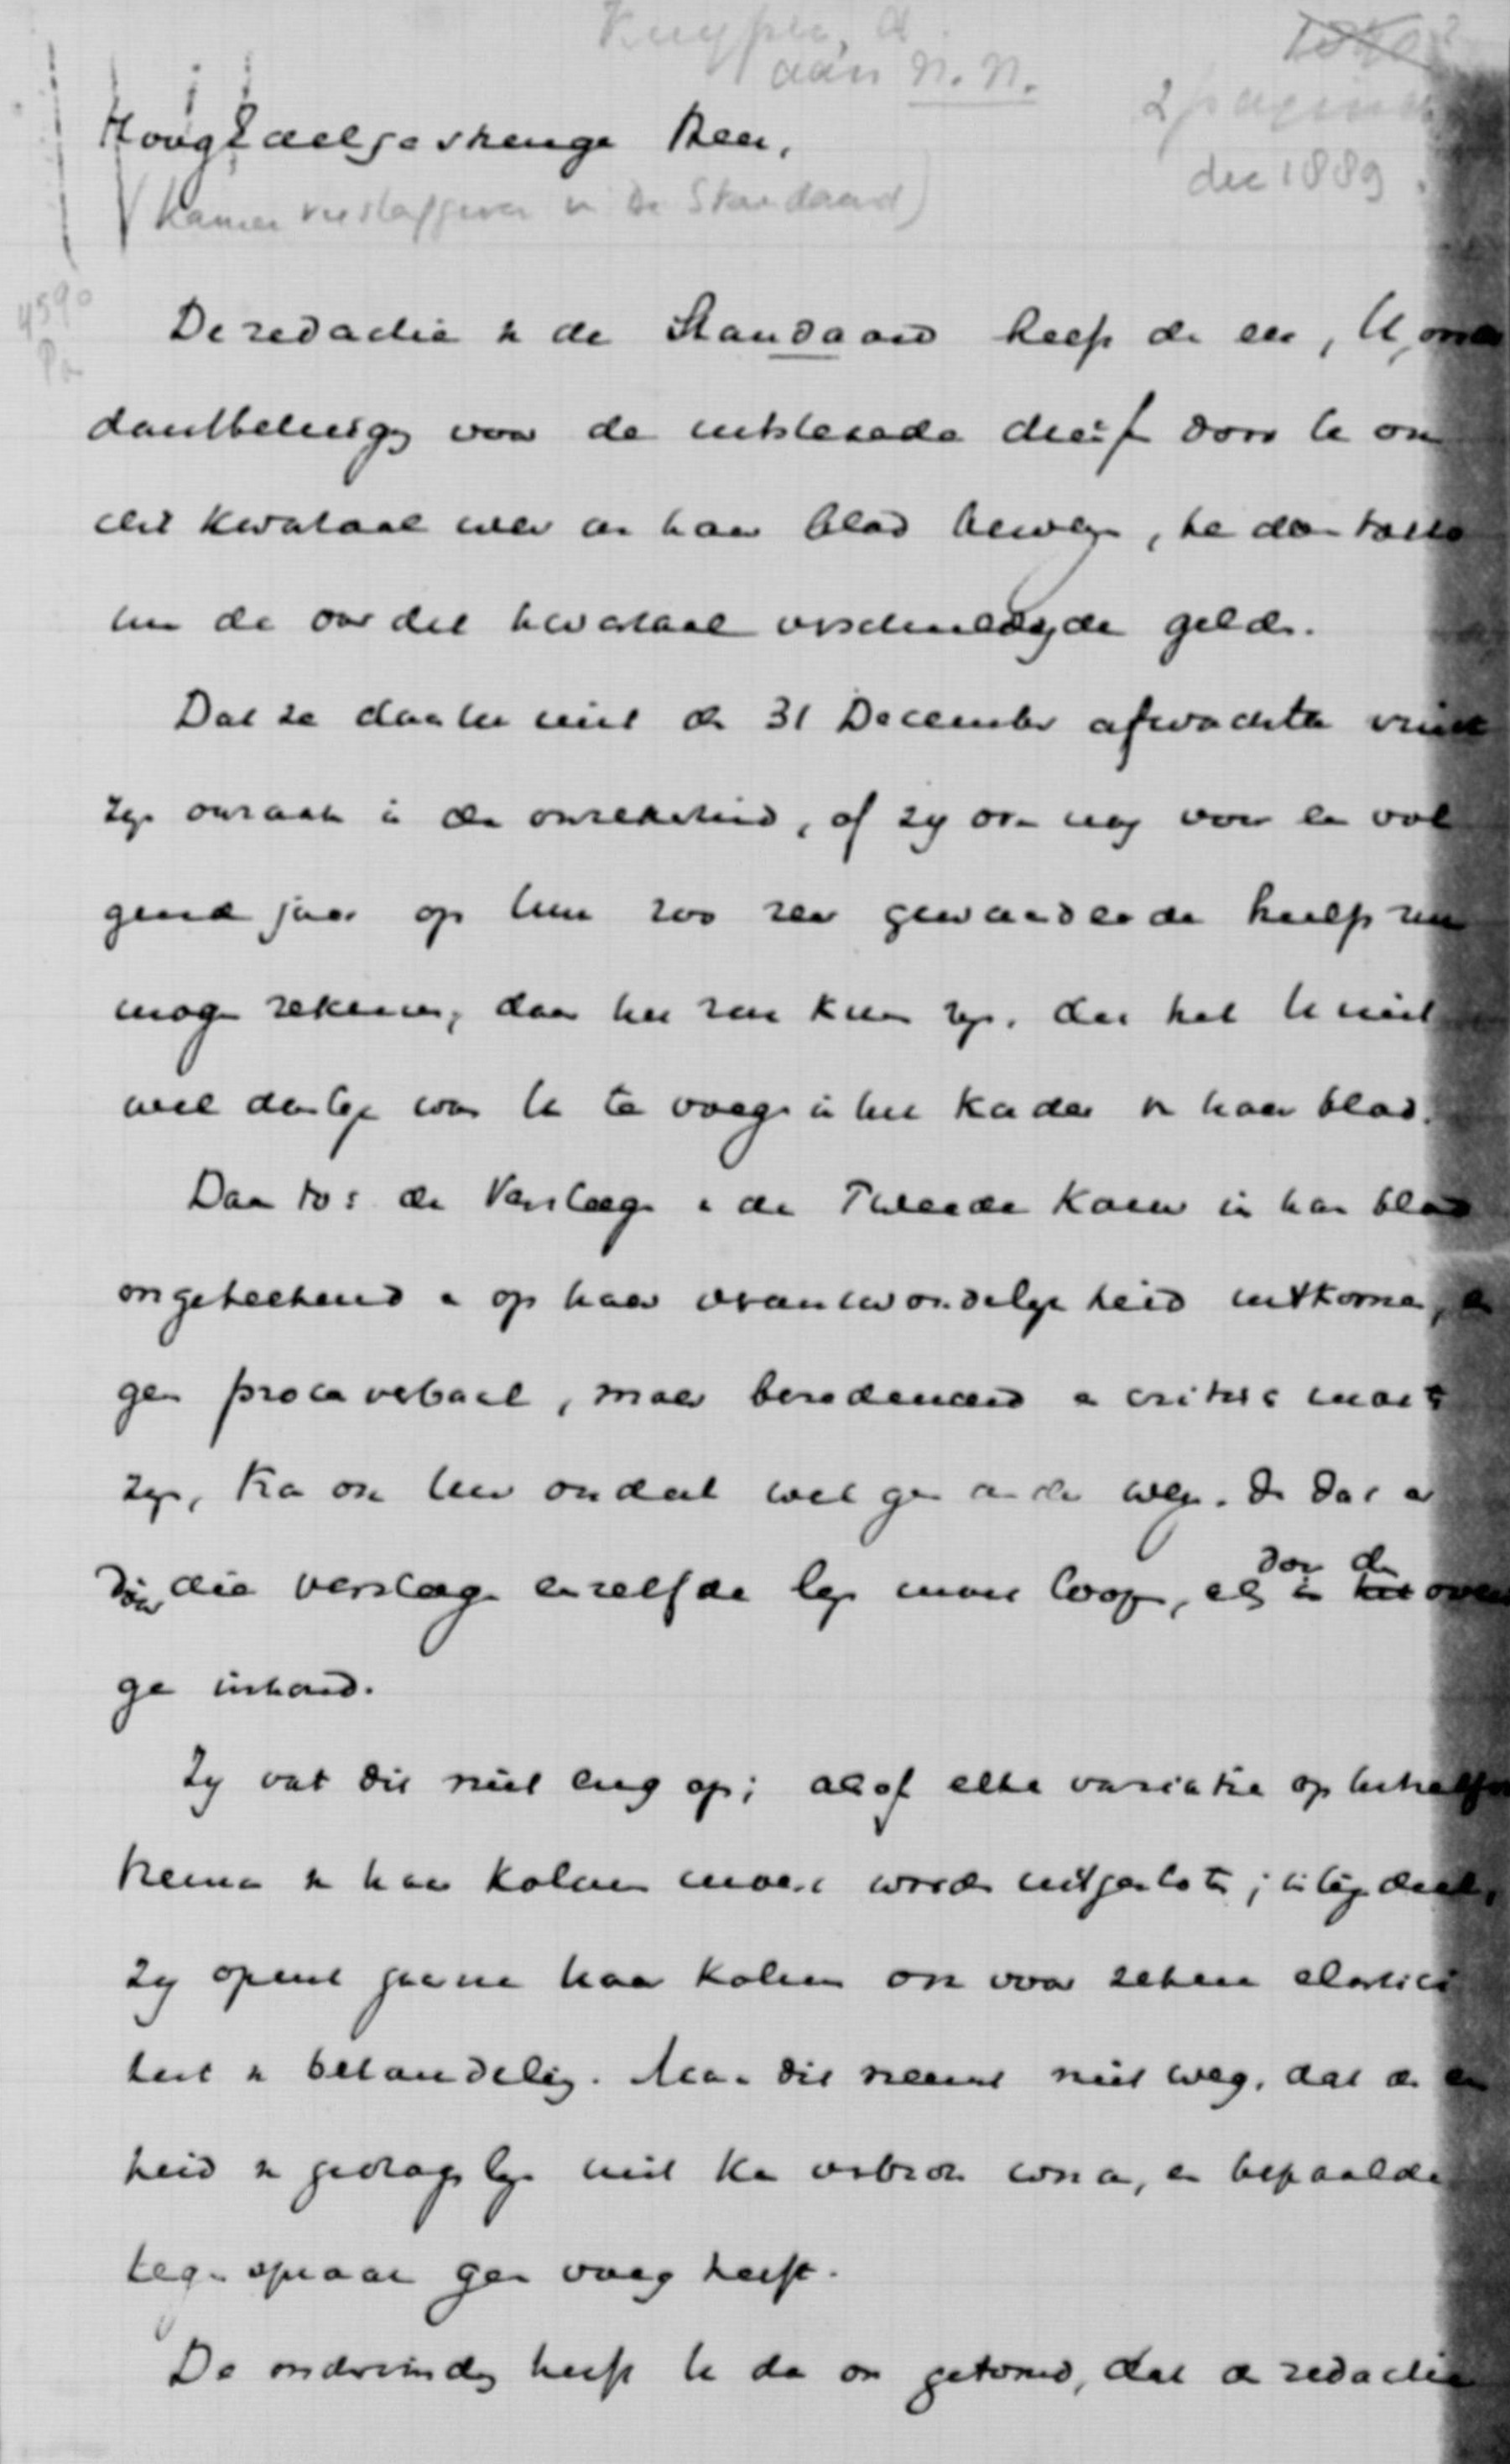 Kuyper, A.
aan N. N.
2 pagina's
dec 1889.
HoogEdelgestrenge Heer,
(Kamerverslaggever v De Standaard)
4590
De redactie v de Standaard heeft de eer, U, onder
dankbetuiging voor de uitstekende dienst door U on
dit kwartaal weer aan haar blad bewezen, te doen
de over dit kwartaal verschuldigde gelden.
Dat ze daarbij niet de 31 December afwachtte vindt
zijn oorzaak in de onzekerheid, of zij ook nog voor een vol
gend jaar op Uw zoo zeer gewaardeerde hulp zou
mogen rekenen, daar het zou kunnen zijn, dat het U niet
wel doenlijk was U te voegen in het kader v haar blad.
Daar toch de Verslagen v de Tweede Kamer in haar blad
ongeteekend en op haar verantwoordelijkheid uitkomen, en
geen proces verbaal, maar beredeneerd en critisch moet
zijn, kan on het oordeel wel geen andere weg. dat er
door die verslagen eenzelfde lijn moet loopen, als door den
ge inhoud.
Zij vat dit niet eng op; alsof elke variatie op hetzelfde
thema in haar kolommen moest worden uitgesloten; integendeel,
zij opent gaarne haar kolommen ook voor zekere elastici
teit v behandeling. Maar dit neemt niet weg, dat de een
heid v gedragslijn niet kan verbroken worden, en bepaalde
tegenspraak geen voeg heeft.
De ondervinding heeft U dan ook getoond, dat de redactie